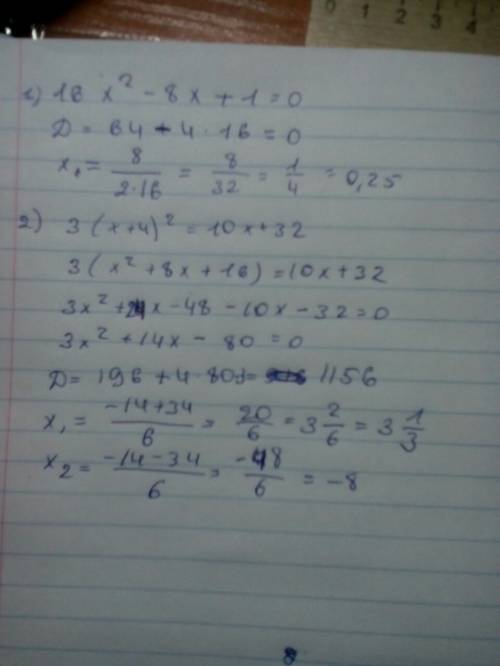 0 1 2 3 4
1) 16 x² - 8x + 1 = 0
D = 64 - 4 · 16 = 0
x₁ = 8/(2·16) = 8/32 = 1/4 = 0,25
2) 3 (x+4)² = 10x+32
3 (x² + 8x + 16) = 10x+32
3x² + 24x - 48 - 10x - 32 = 0
3x² + 14x - 80 = 0
D = 196 + 4· 80 = 1156
x₁ = (-14+34)/6 = 20/6 = 3 2/6 = 3 1/3
x₂ = (-14-34)/6 = -48/6 = -8
8